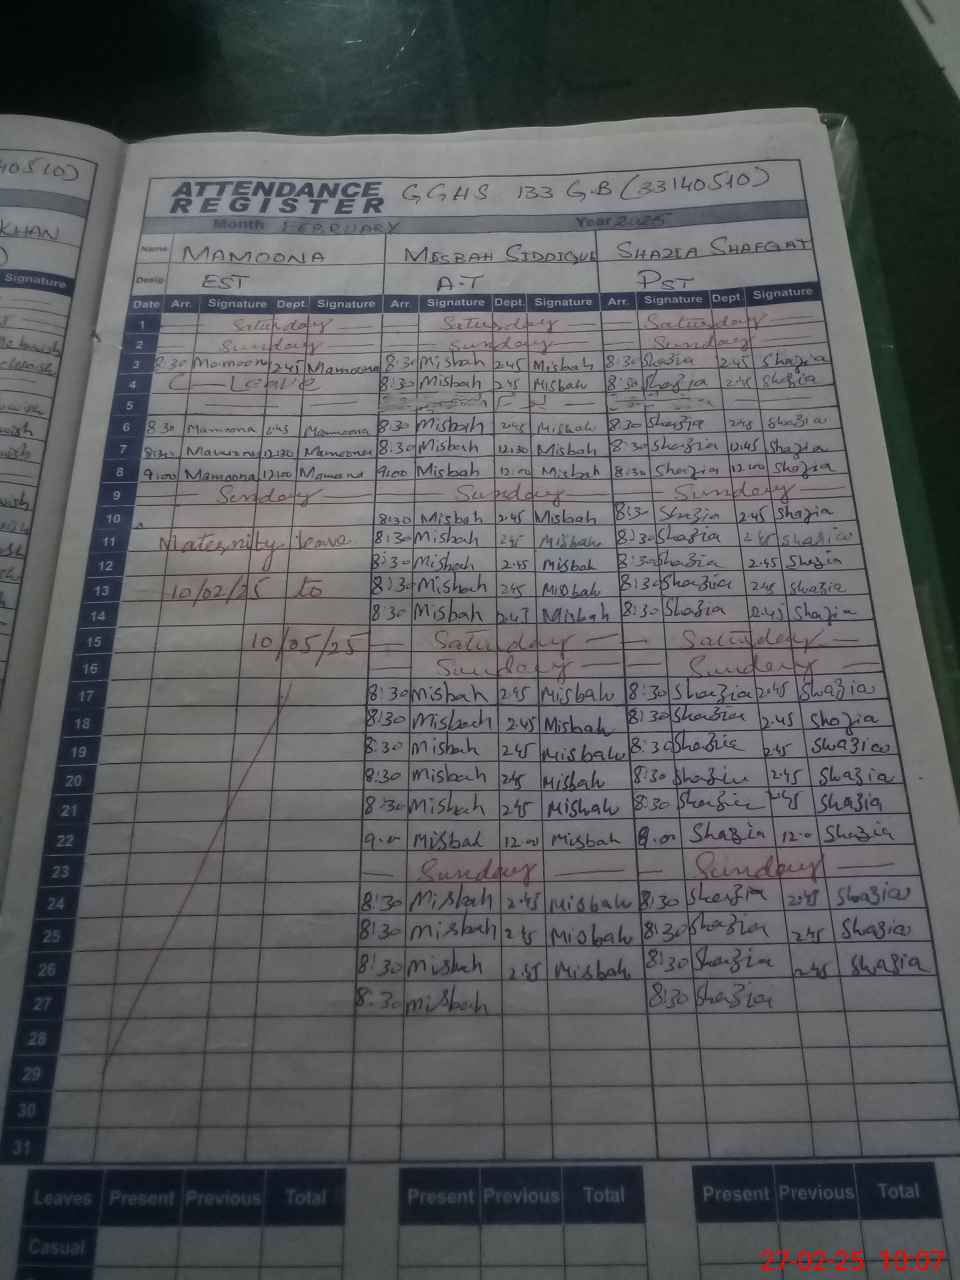 40510)
KHAN
Signature
ATTENDANCE REGISTER GGHS 133 G.B (33140510)
Month FEBRUARY Year 2025
Name MAMOONA MESBAH SIDDIQUE SHAZIA SHAFQAT
Desig EST A.T PST
Date Arr. Signature Dept. Signature Arr. Signature Dept. Signature Arr. Signature Dept Signature
1 Saturday Saturday Saturday
2 Sunday Sunday Sunday
3 8:30 Mamoona 2:45 Mamoona 8:30 Misbah 2:45 Misbah 8:30 Shazia 2:45 Shazia
4 C Leave 8:30 Misbah 2:45 Misbah 8:30 Shazia 2:45 Shazia
5
6 8:30 Mamoona 2:45 Mamoona 8:30 Misbah 2:45 Misbah 8:30 Shazia 2:45 Shazia
7 8:30 Mamoona 12:30 Mamoona 8:30 Misbah 12:30 Misbah 8:30 Shazia 12:45 Shazia
8 9:00 Mamoona 12:00 Mamoona 9:00 Misbah 12:00 Misbah 8:30 Shazia 12:00 Shazia
9 Sunday Sunday Sunday
10 8:30 Misbah 2:45 Misbah 8:30 Shazia 2:45 Shazia
11 Maternity leave 8:30 Misbah 2:45 Misbah 8:30 Shazia 2:45 Shazia
12 8:30 Misbah 2:45 Misbah 8:30 Shazia 2:45 Shazia
13 10/02/25 to 8:30 Misbah 2:45 Misbah 8:30 Shazia 2:45 Shazia
14 8:30 Misbah 2:45 Misbah 8:30 Shazia 2:45 Shazia
15 10/05/25 Saturday Saturday
16 Sunday Sunday
17 8:30 Misbah 2:45 Misbah 8:30 Shazia 2:45 Shazia
18 8:30 Misbah 2:45 Misbah 8:30 Shazia 2:45 Shazia
19 8:30 Misbah 2:45 Misbah 8:30 Shazia 2:45 Shazia
20 8:30 Misbah 2:45 Misbah 8:30 Shazia 2:45 Shazia
21 8:30 Misbah 2:45 Misbah 8:30 Shazia 2:45 Shazia
22 9.00 Misbah 12:00 Misbah 9.00 Shazia 12:00 Shazia
23 Sunday Sunday
24 8:30 Misbah 2:45 Misbah 8:30 Shazia 2:45 Shazia
25 8:30 Misbah 2:45 Misbah 8:30 Shazia 2:45 Shazia
26 8:30 Misbah 2:45 Misbah 8:30 Shazia 2:45 Shazia
27 8:30 Misbah 8:30 Shazia
28
29
30
31
Leaves Present Previous Total Present Previous Total Present Previous Total
Casual
27-02-25 10:07